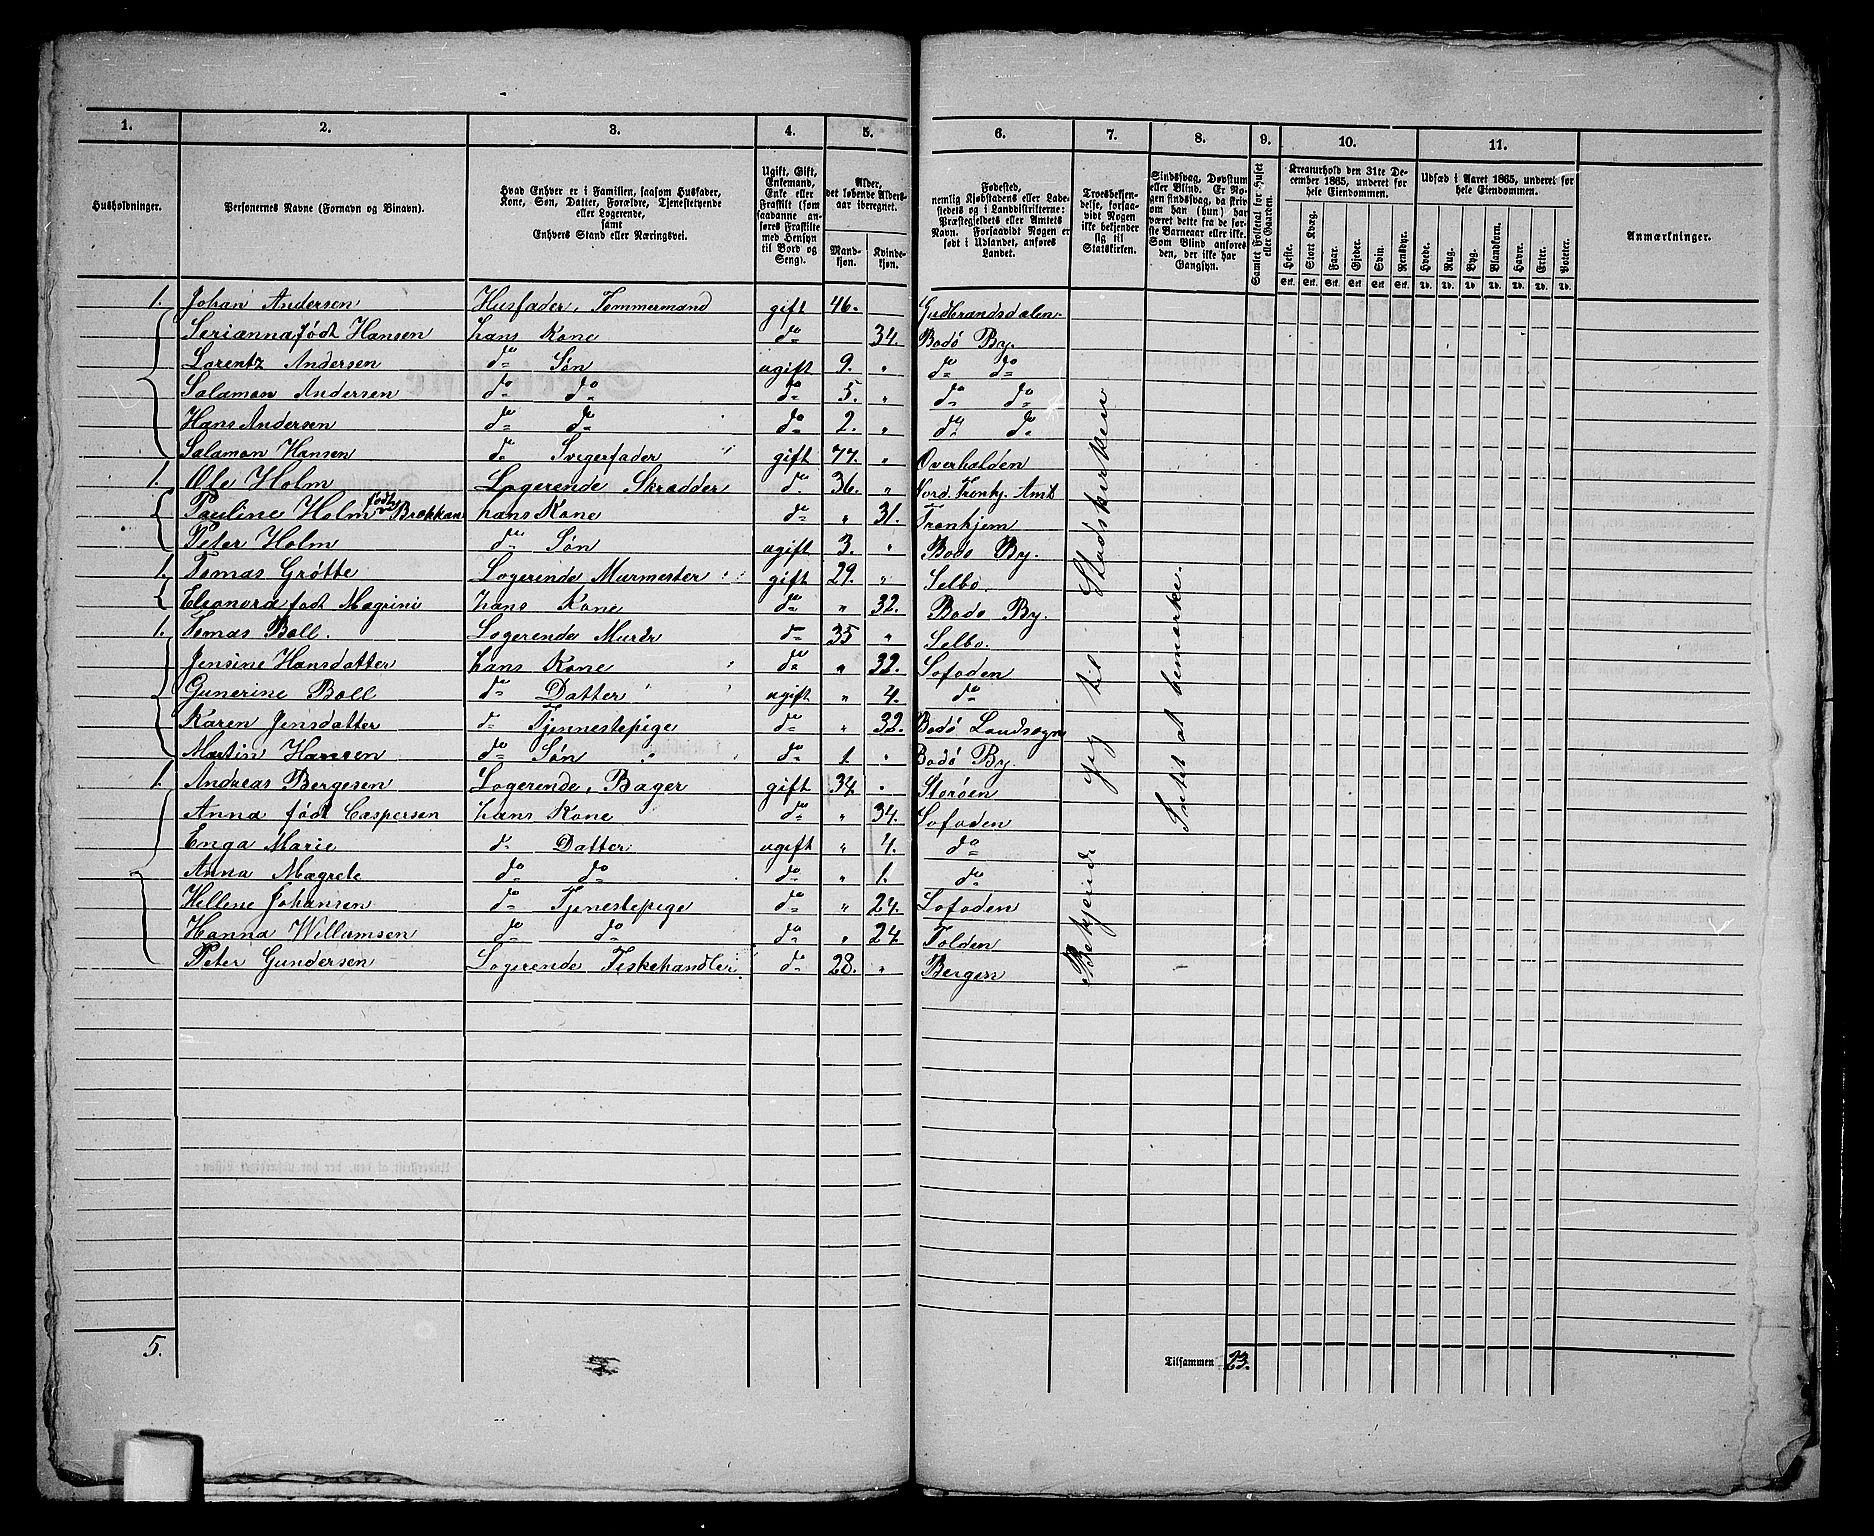 1. 2. 3. 4. 5. 6. 7. 8. 9. 10. 11.
Husholdninger.
Personernes Navne (Fornavn og Binavn).
Hvad Enhver er i Familien, saasom Husfader, Kone, Søn, Datter, Forældre, Tjenestetyende eller Logerende, samt Enhvers Stand eller Næringsvei.
Ugift, Gift, Enkemand, Enke eller Fraskilt (som saadanne anføres Fraskilte med Hensyn til Bord og Seng).
Alder, det løbende Aldersaar iberegnet.
Mandkjøn. Kvindekjøn.
Fødested, nemlig Kjøbstadens eller Ladestedets og i Landdistrikterne: Præstegjeldets eller Amtets Navn. Forsaavidt Nogen er født i Udlandet, anføres Landet.
Troesbekjendelse, forsaavidt Nogen ikke bekjender sig til Statskirken.
Sindssvag, Døvstum eller Blind. Er Nogen sindssvag, da skriv om han (hun) har været dette fra de første Barneaar eller ikke. Som Blind anføres den, der ikke har Gangsyn.
Samlet Folketal for Huset eller Gaarden.
Kreaturhold den 31te December 1865, underet for hele Eiendommen.
Heste. Stort Kvæg. Faar. Gjeder. Svin. Rensdyr.
Udsæd i Aaret 1865, underet for hele Eiendommen.
Hvede. Rug. Byg. Blandkorn. Havre. Erter. Poteter.
Anmærkninger.
Stk. Stk. Stk. Stk. Stk. Stk. Td. Td. Td. Td. Td. Td. Td.
1. Johan Andersen Husfader, Tømmermand gift 46. Gudbrandsdalen
Serianna født Hansen hans Kone do 34. Bodö By.
Lorentz Andersen do Søn ugift 9. " do do
Salamon Andersen do do do 5. " do do
Hans Andersen do do do 2. " do do
Salamon Hansen do Svigerfader gift 77. " Overhalden
1. Ole Holm Logerende Skrædder do 36. " Nord. Tronhj. Amt
Pauline Holm født Brækkan hans Kone do " 31. Tronhjem
Peter Holm do Søn ugift 3. " Bodö By.
1. Tomas Grötte Logerende Murmester gift 29. " Selbo.
Eleonora født Magrini hans Kone do " 32. Bodö By.
1. Tomas Boll. Logerende Murer do 35 " Selbo.
Jensine Hansdatter hans Kone do " 32. Lofoden
Gunerine Boll do Datter ugift " 4. do
Karen Jensdatter do Tjennestepige do " 32. Bodö Landsogn
Martin Hansen do Søn do 1. " Bodö By.
1. Andreas Bergesen Logerende, Bager gift 34 " Storöen
Anna født Caspersen hans Kone do " 34. Lofoden
Enga Marie do Datter ugift " 4. do
Anna Magrete do do do " 1. do
Hellene Johansen do Tjenestepige do " 24. Lofoden
Hanna Willumsen do do do " 24 Folden
Peter Gundersen Logerende Fiskehandler do 28. " Bergen
Bekjender sig til Stadskirken
Intet at bemærke.
5.
Tilsammen 23.